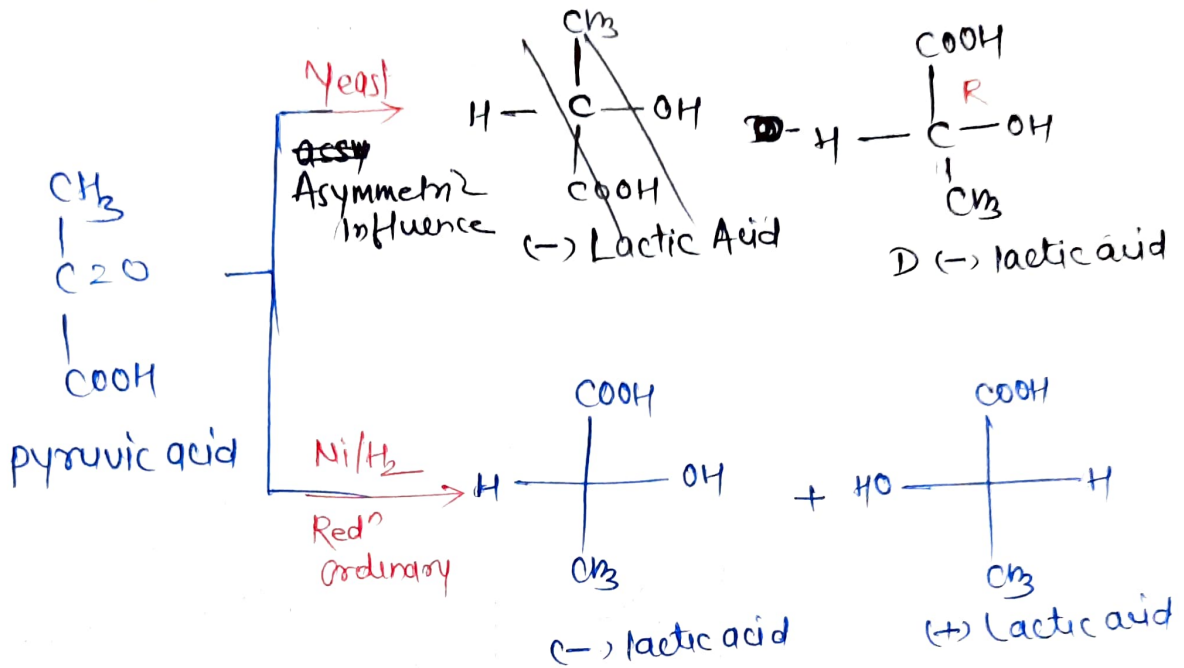 CH3
C=O
COOH
pyruvic acid
Yeast
assy
Asymmetric
Influence
CH3
H — C — OH
COOH
(-) Lactic Acid
COOH
R
D- H — C — OH
CH3
D (-) lactic acid
Ni/H2
Redn
ordinary
COOH
H OH
CH3
(-) lactic acid
+
COOH
HO H
CH3
(+) Lactic acid